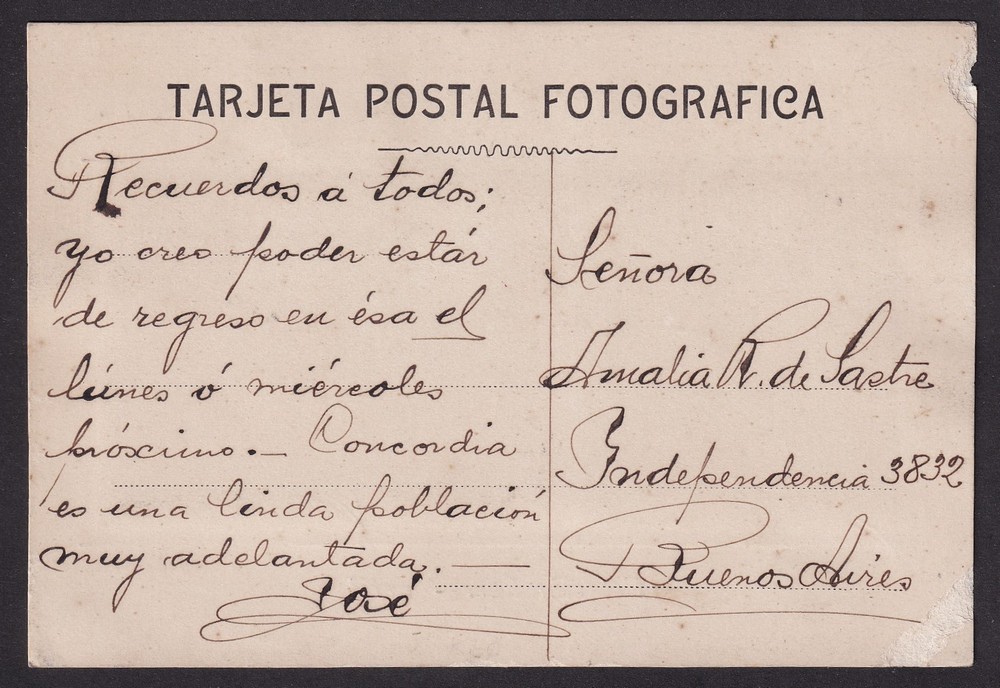 TARJETA POSTAL FOTOGRAFICA
Recuerdos á todos;
yo creo poder estár
de regreso en ésa el
lúnes ó miércoles
próximo.— Concordia
es una linda población
muy adelantada.—
José
Señora
Amalia R. de Sastre
Independencia 3832
Buenos Aires